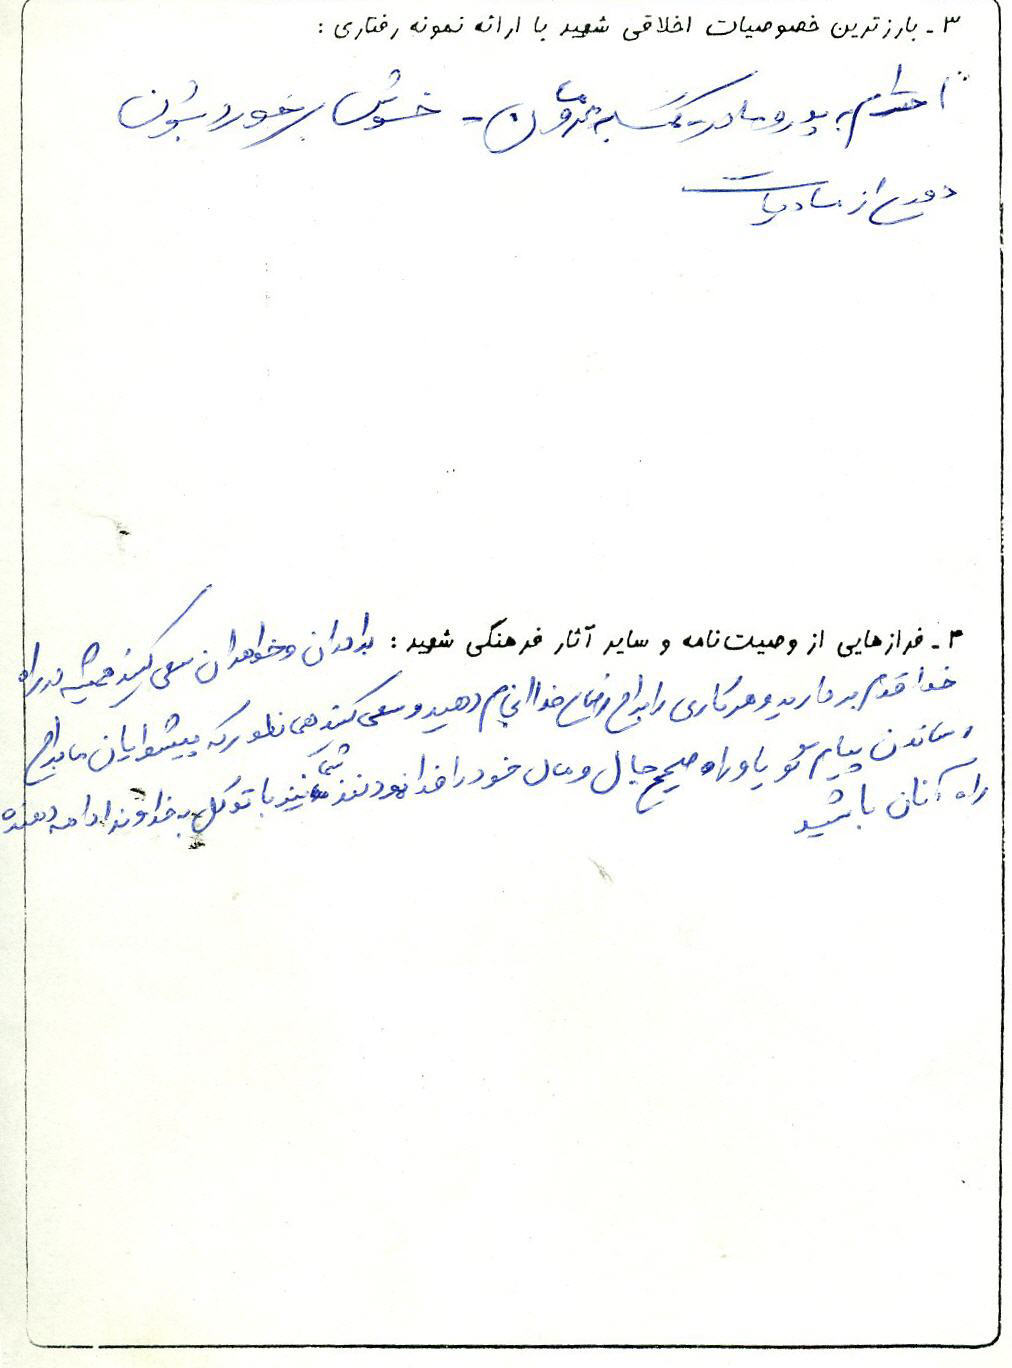 ۳ - بارزترین خصوصیات اخلاقی شهید با ارائه نمونه رفتاری :
احترام به پدر و مادر - کمک به محرومان - خوش برخورد بودن
دوری از مادیات
۴ - فرازهایی از وصیت‌نامه و سایر آثار فرهنگی شهید : برادران و خواهران سعی کنید همیشه در راه
خدا قدم بردارید و هر کاری را برای رضای خدا انجام دهید و سعی کنید همانطور که پیشوایان ما برای
رساندن پیام و راه صحیح جان و مال خود را فدا نمودند شما نیز با توکل به خداوند ادامه دهنده
راه آنان باشید